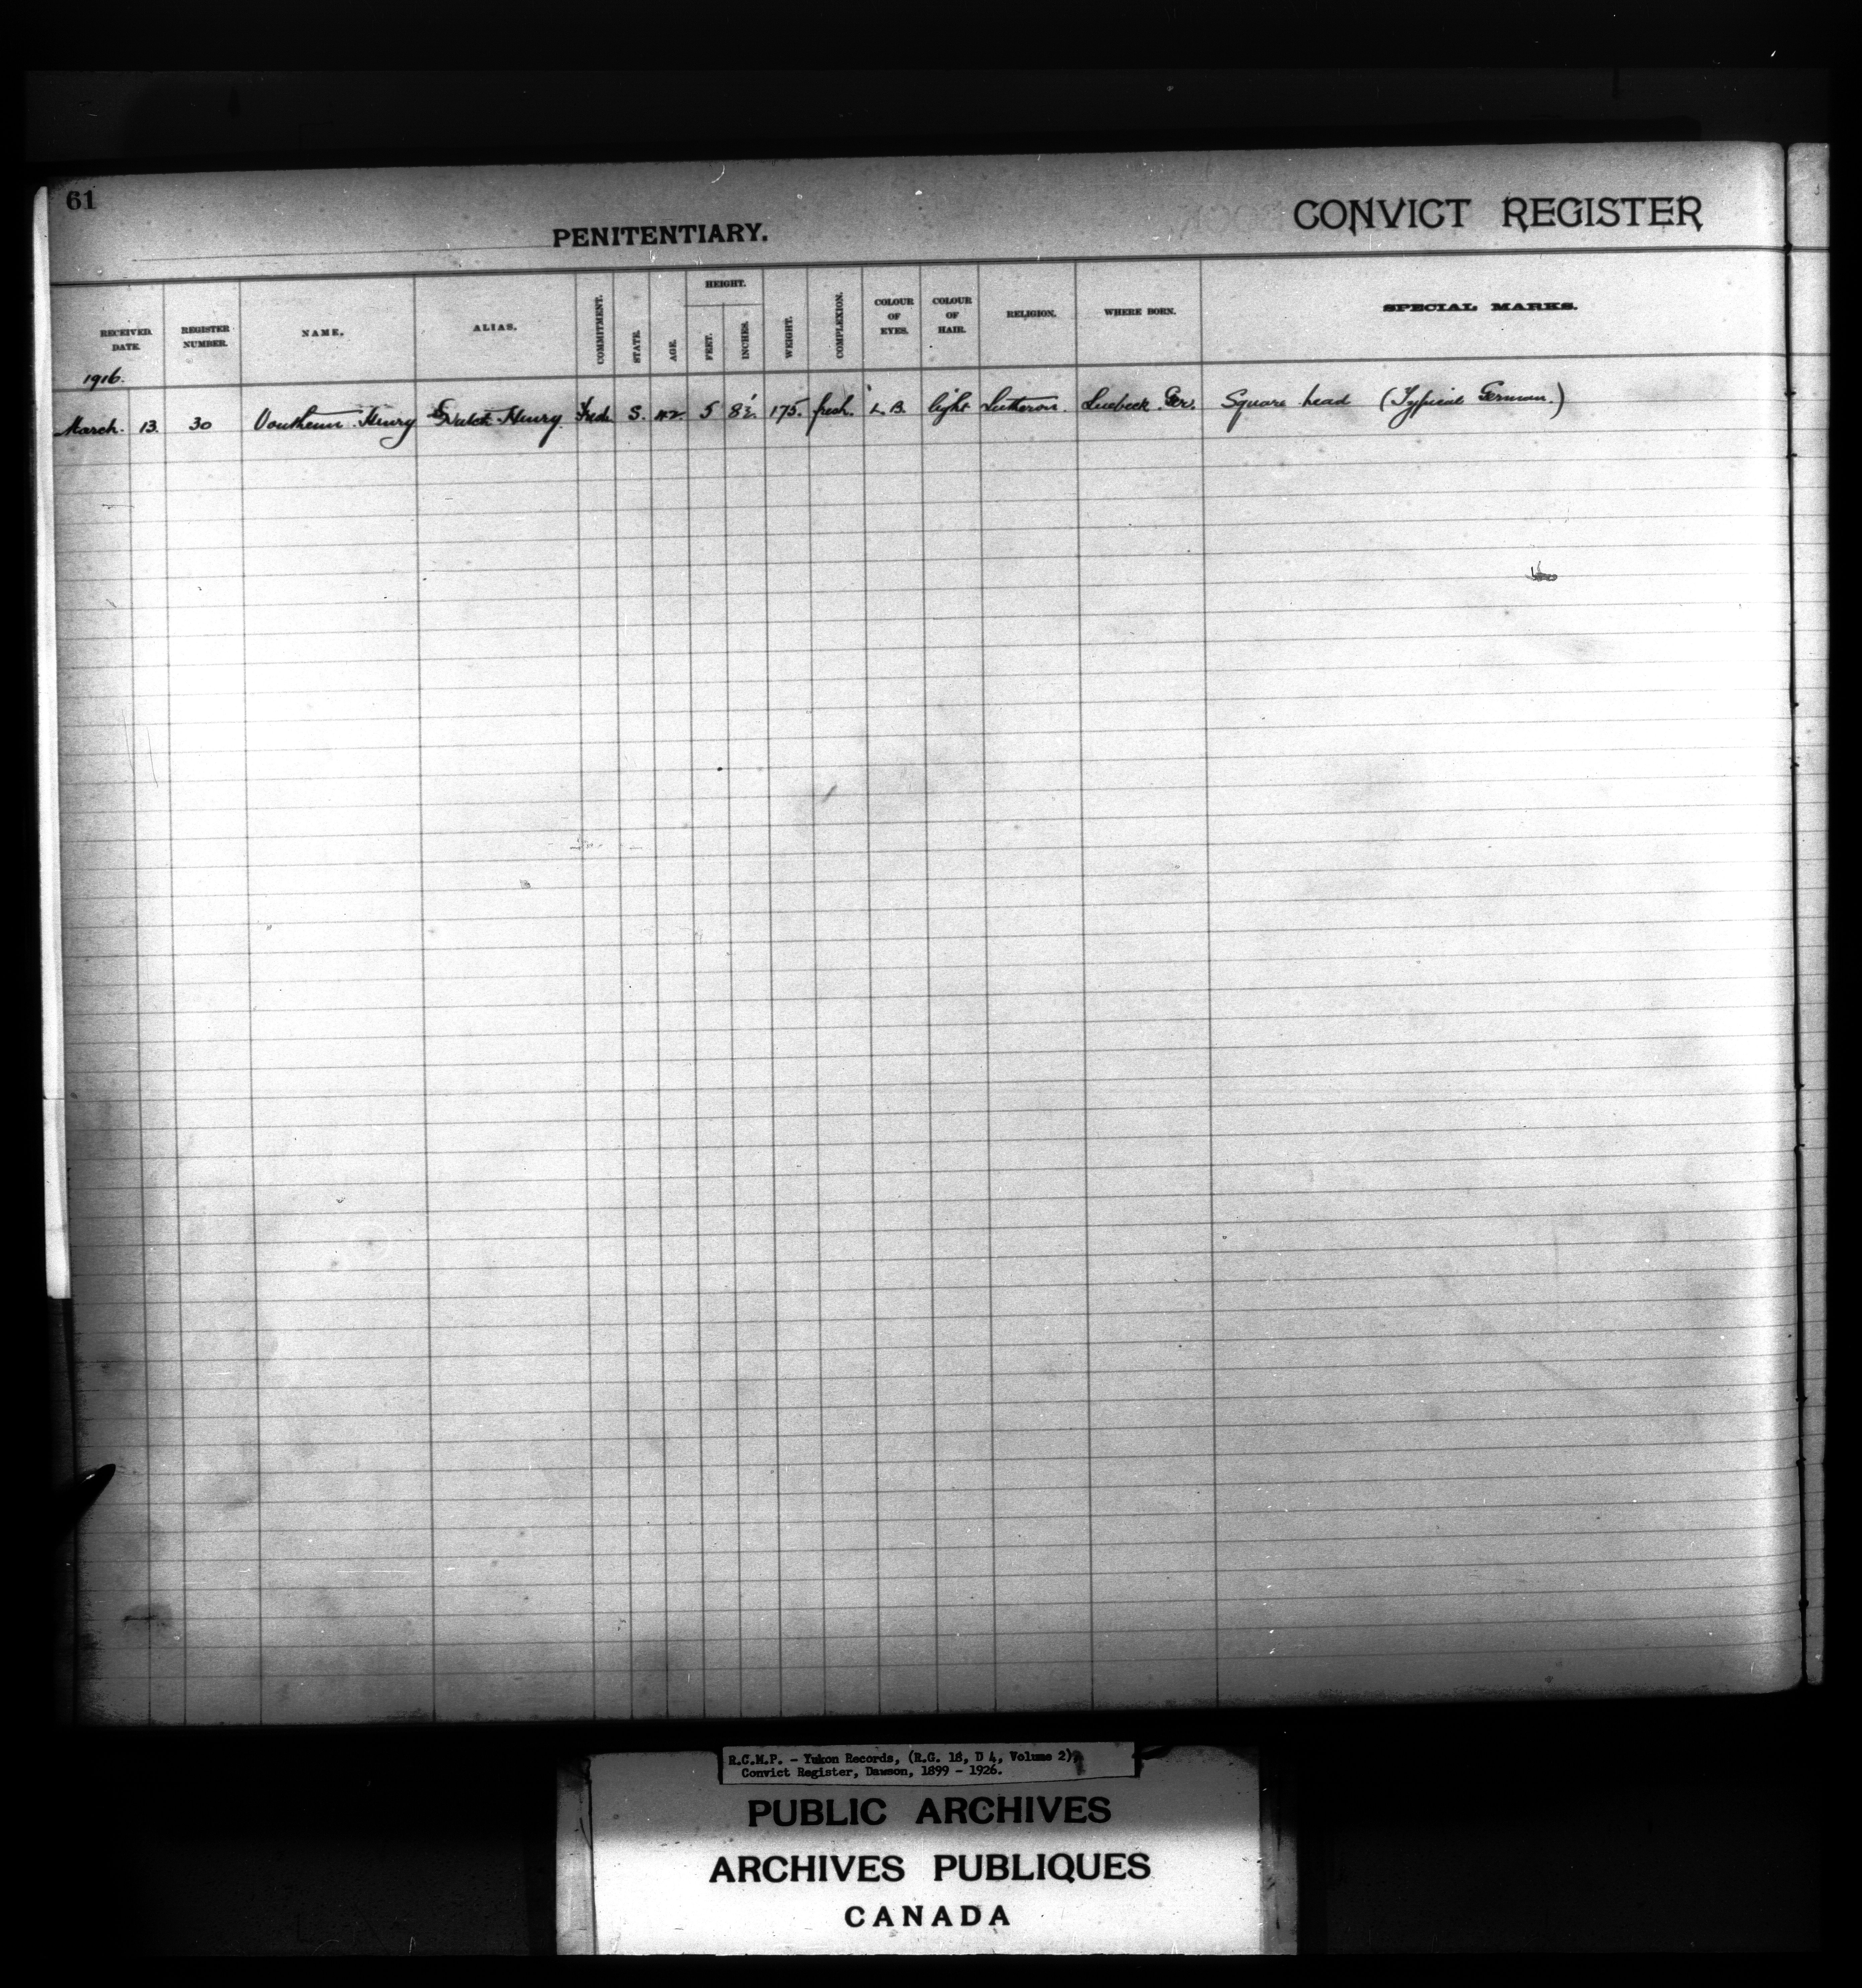 61
PENITENTIARY.
CONVICT REGISTER
RECEIVED. DATE. REGISTER NUMBER. NAME. ALIAS. COMMITMENT. STATE. AGE. HEIGHT. FEET. INCHES. WEIGHT. COMPLEXION. COLOUR OF EYES. COLOUR OF HAIR. RELIGION. WHERE BORN. SPECIAL MARKS.
1916.
March. 13. 30 Henry Dutch Henry. S. 42 5 8½ 175. fresh. L.B. light Lutheran. Luebeck. Ger. Square head (Typical German.)
R.C.M.P. - Yukon Records, (R.G. 18, D 4, Volume 2),
Convict Register, Dawson, 1899 - 1926.
PUBLIC ARCHIVES
ARCHIVES PUBLIQUES
CANADA